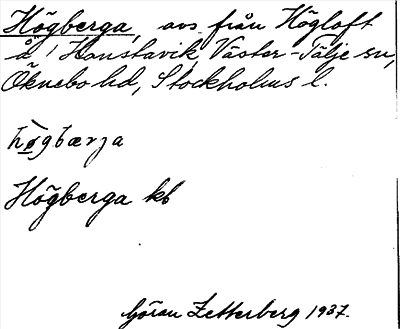 Högberga, avs från Högloft
å 1 Hanstavik, Väster-Tälje sn,
Öknebo hd, Stockholms l.
hø̀gbærja
Högberga kb
Göran Zetterberg 1937.